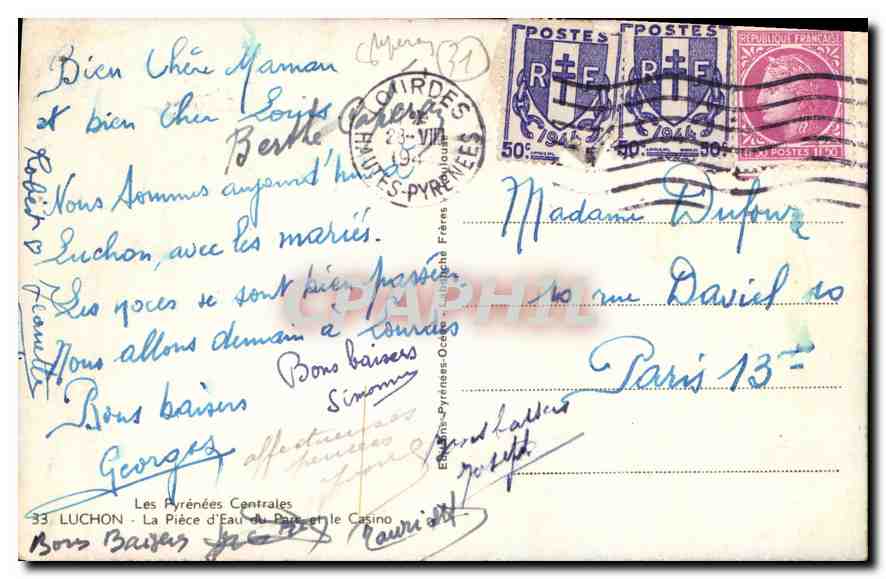 Bien Chère Maman
et bien Cher Louis
Berthe
Nous sommes aujourd'hui à
Luchon, avec les mariés.
Les noces se sont bien passées
Nous allons demain à Lourdes
Bons baisers
Georges
Robert
Bons baisers
Simonne
affectueuses
pensées
bons baisers
Joseph
Les Pyrénées Centrales
33 LUCHON - La Pièce d'Eau du Parc et le Casino
Bons Baisers
Editions Pyrénées-Océan - Labouche Frères - Toulouse
LOURDES
28-VIII
194
HAUTES-PYRÉNÉES
31
POSTES
RF
1944
50c
POSTES
RF
1944
50c
RÉPUBLIQUE FRANÇAISE
1f50 POSTES 1f50
Madame Dufour
10 rue Daviel 10
Paris 13me
CPAPHIL